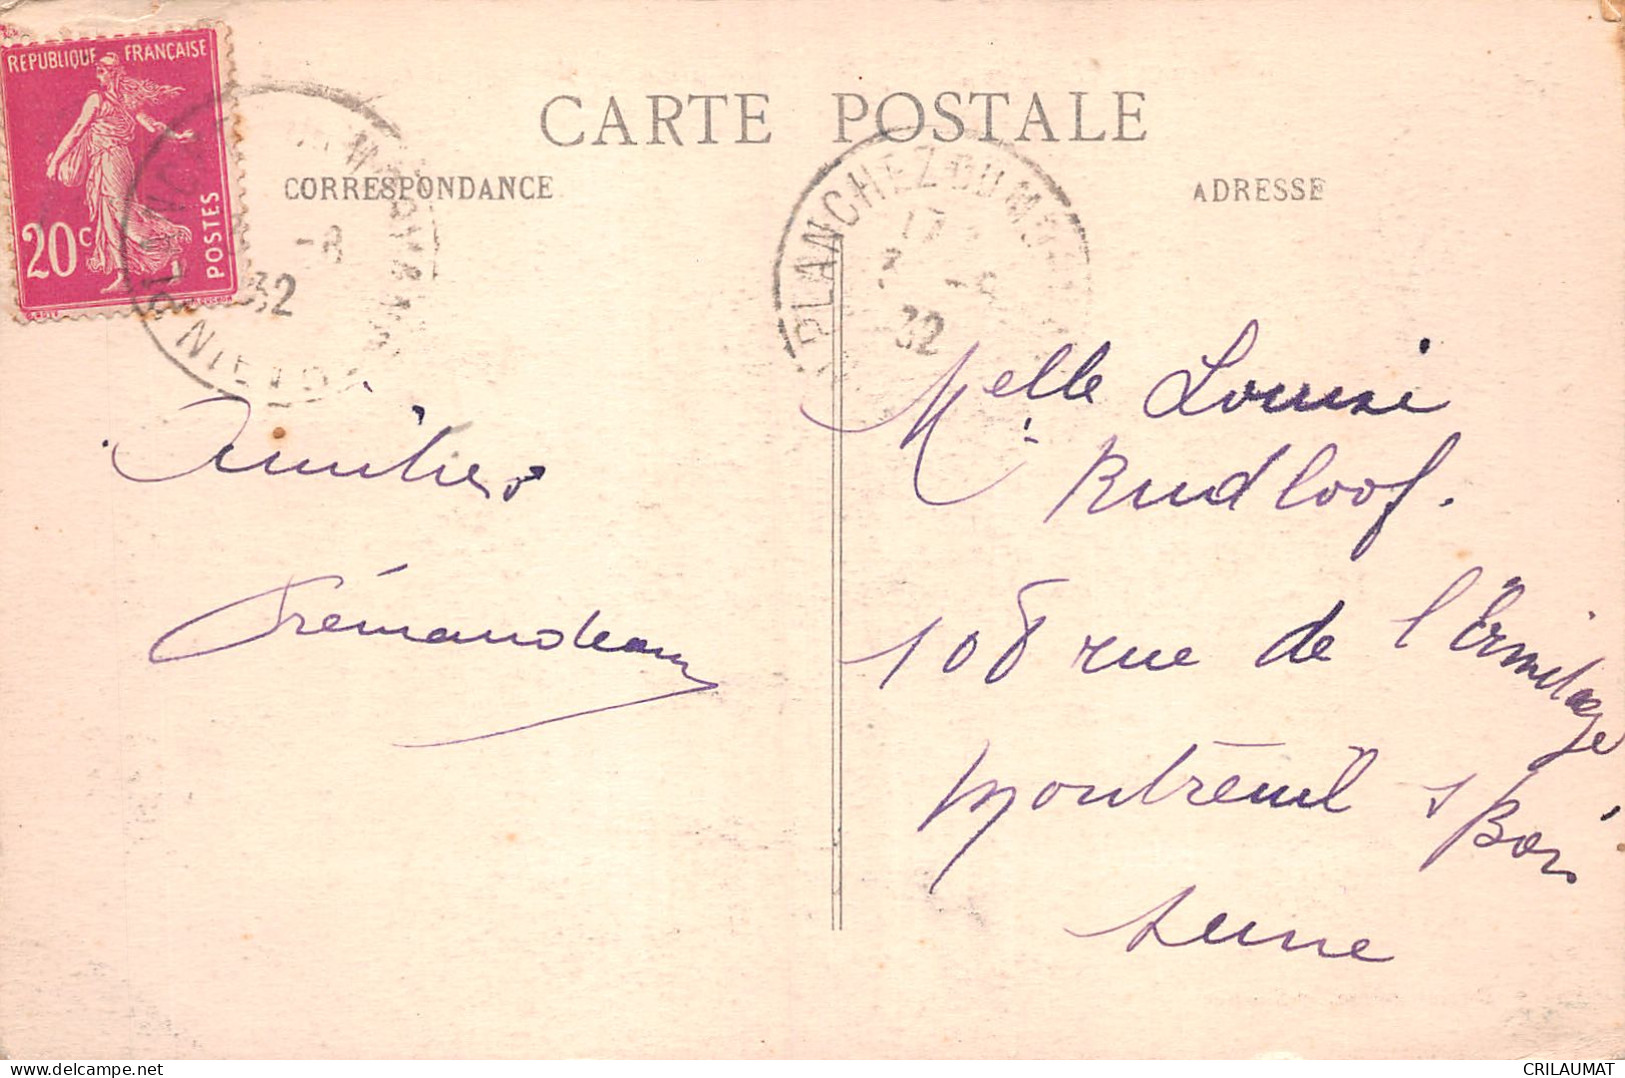 REPUBLIQUE FRANÇAISE
20c
POSTES
CARTE POSTALE
CORRESPONDANCE
ADRESSE
PLANCHEZ DU M
17
32
-8
32
NIEV
Amitiés
Melle Louise
Rudloof.
108 rue de l'Ermitage
Montreuil s Bois
Seine
delcampe.net
CRILAUMAT